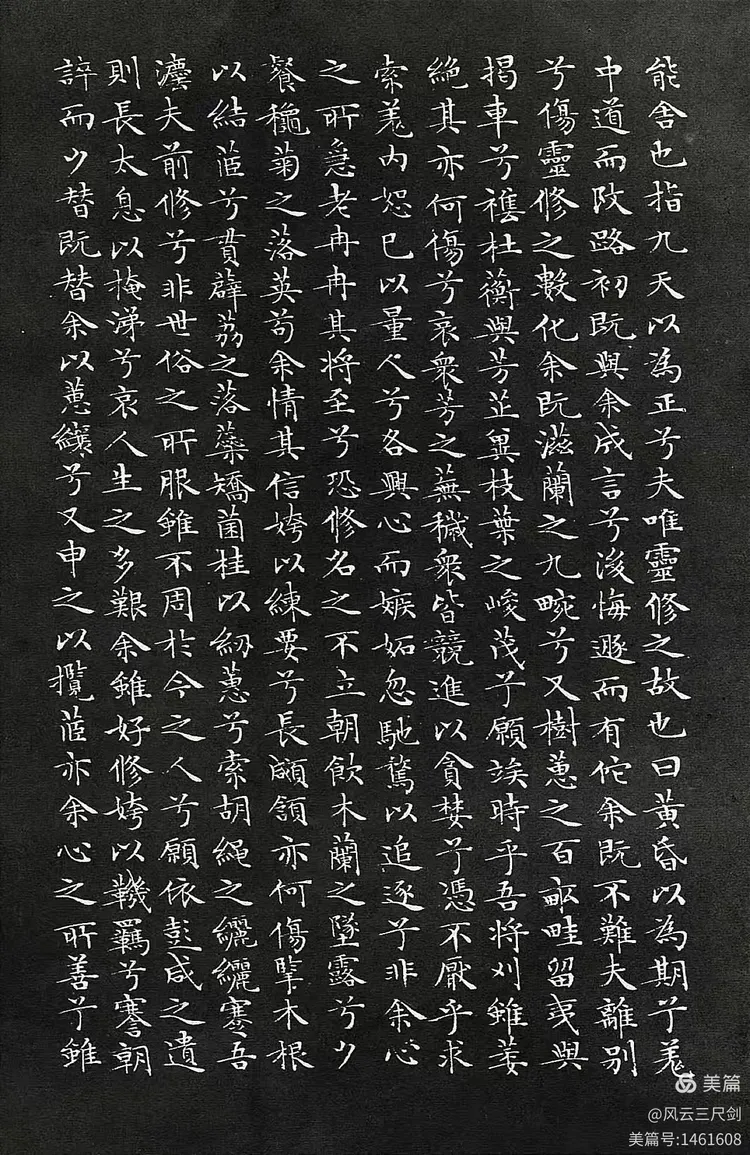 能舍也指九天以為正兮夫唯靈修之故也曰黃昏以為期兮羌
中道而改路初既與余成言兮後悔遯而有佗余既不難夫離別
兮傷靈修之數化余既滋蘭之九畹兮又樹蕙之百畝畦留夷與
揭車兮襍杜蘅與芳芷冀枝葉之峻茂兮願竢時乎吾將刈雖萎
絕其亦何傷兮哀衆芳之蕪穢衆皆競進以貪婪兮憑不厭乎求
索羌內恕已以量人兮各興心而嫉妬忽馳騖以追逐兮非余心
之所急老冉冉其將至兮恐修名之不立朝飲木蘭之墜露兮夕
餐秋菊之落英苟余情其信姱以練要兮長顑頷亦何傷掔木根
以結茝兮貫薜荔之落蘂矯菌桂以紉蕙兮索胡繩之纚纚謇吾
灋夫前修兮非世俗之所服雖不周於今之人兮願依彭咸之遺
則長太息以掩涕兮哀人生之多艱余雖好修姱以鞿羈兮謇朝
誶而夕替既替余以蕙纕兮又申之以攬茝亦余心之所善兮雖
美篇
@风云三尺剑
美篇号:1461608